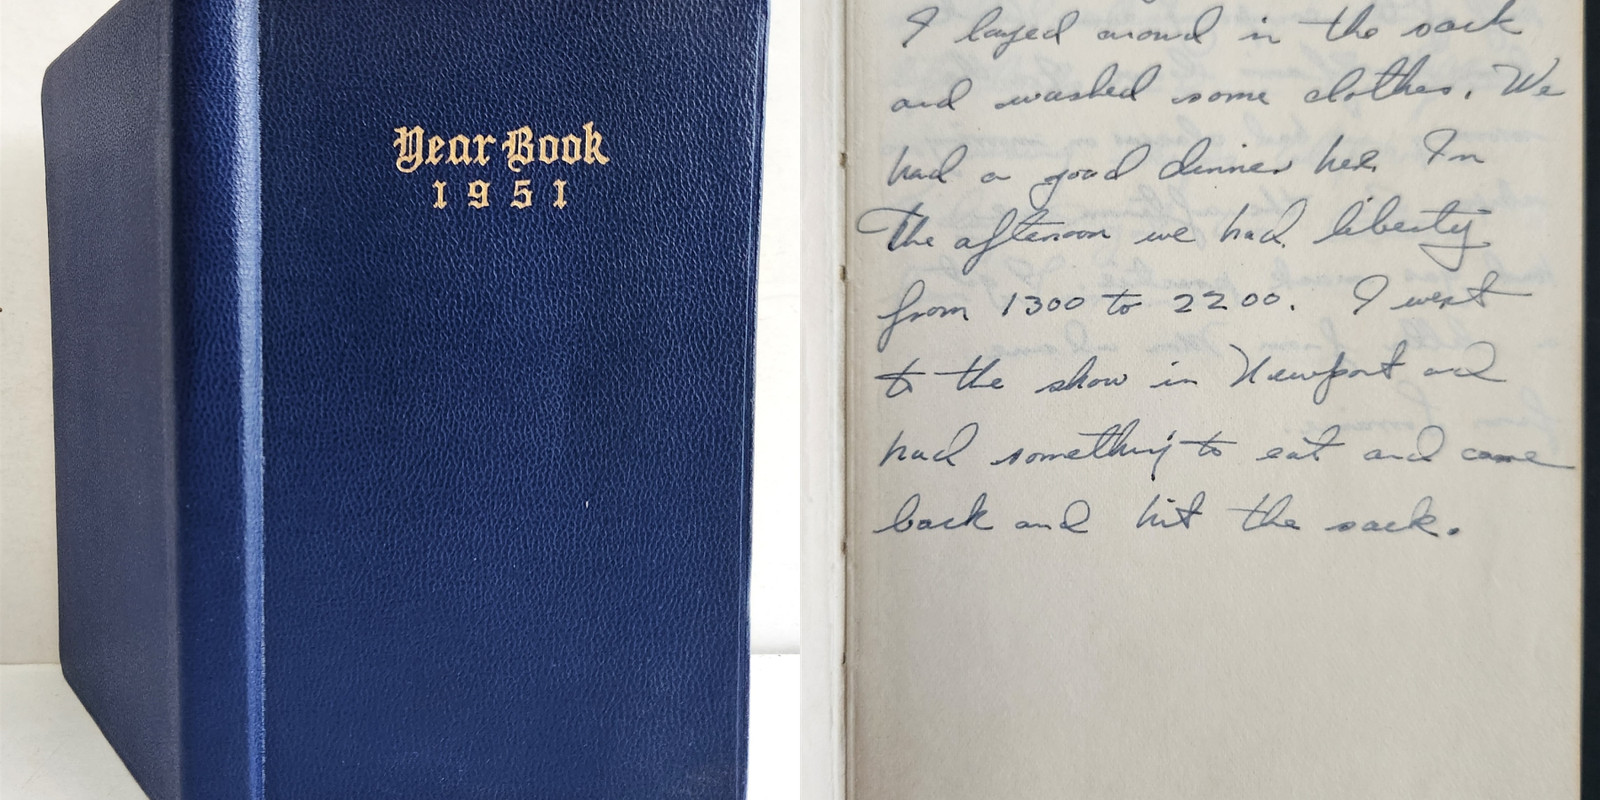 Year Book
1951
I layed around in the sack
and washed some clothes. We
had a good dinner here. In
The afternoon we had liberty
from 1300 to 2200. I went
to the show in Newport and
had something to eat and came
back and hit the sack.